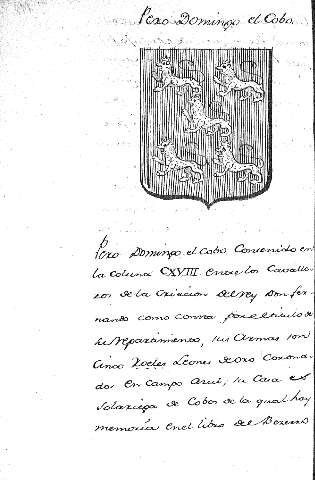 Pero Domingo el Cobo
Pero Domingo el Cobo Contenido en
la coluna CXVIII entre los Cavalle-
ros de la Criacion del rey Don fer-
nando como consta por el titulo de
su repartimiento, sus Armas son
Cinco Leones de oro Corona-
dos en Campo Azul, su Casa es
solariega de Cobos de la qual hay
memoria en el libro del Bezerro